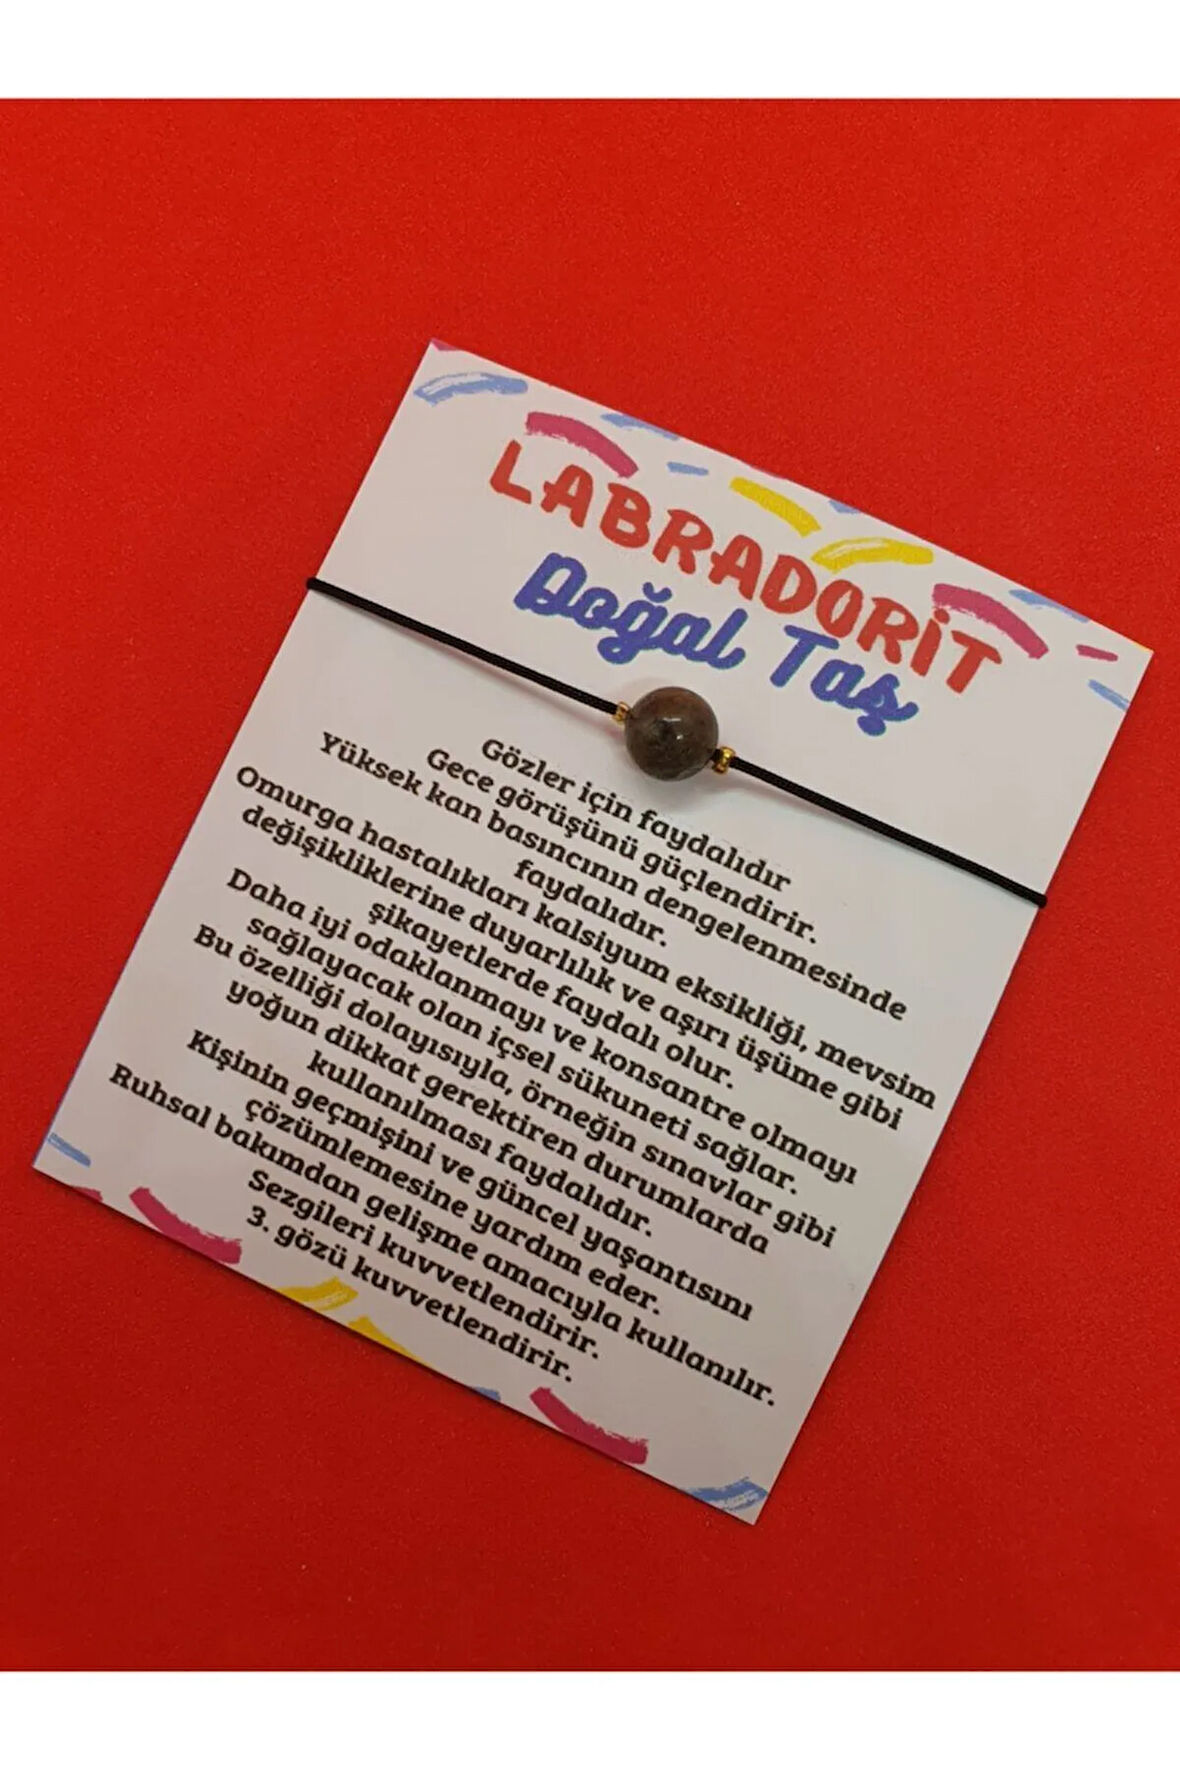 LABRADORİT
Doğal Taş
Gözler için faydalıdır
Gece görüşünü güçlendirir.
Yüksek kan basıncının dengelenmesinde
faydalıdır.
Omurga hastalıkları kalsiyum eksikliği, mevsim
değişikliklerine duyarlılık ve aşırı üşüme gibi
şikayetlerde faydalı olur.
Daha iyi odaklanmayı ve konsantre olmayı
sağlayacak olan içsel sükuneti sağlar.
Bu özelliği dolayısıyla, örneğin sınavlar gibi
yoğun dikkat gerektiren durumlarda
kullanılması faydalıdır.
Kişinin geçmişini ve güncel yaşantısını
çözümlemesine yardım eder.
Ruhsal bakımdan gelişme amacıyla kullanılır.
Sezgileri kuvvetlendirir.
3. gözü kuvvetlendirir.